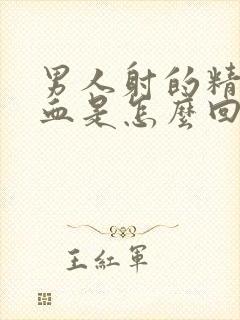 男人射的精
血是怎麼回
王紅軍